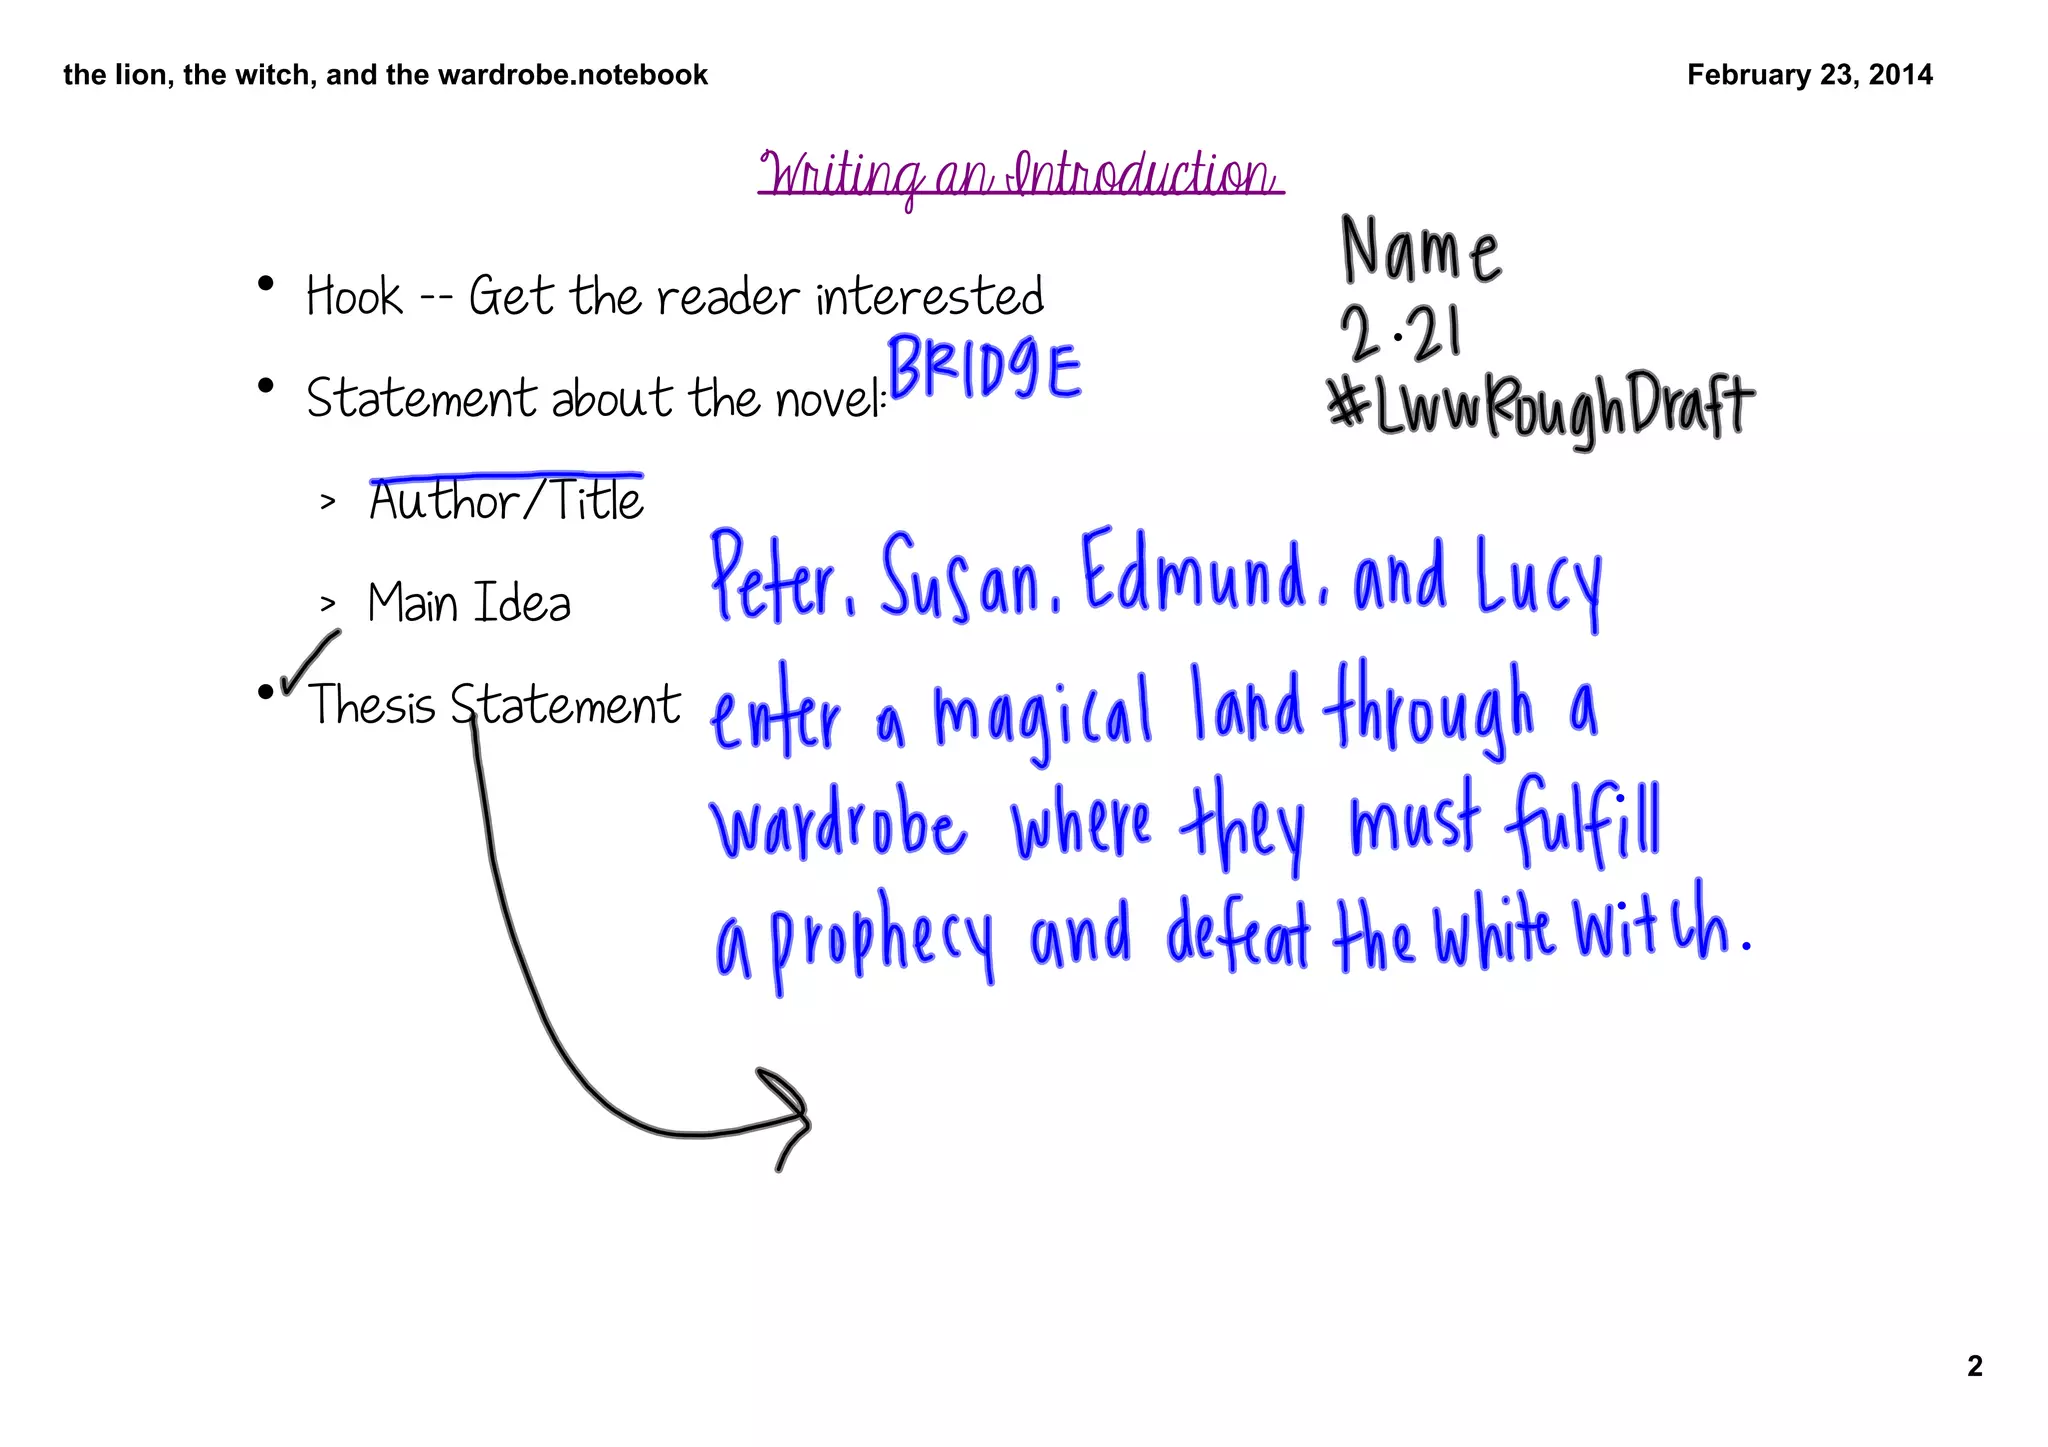 the lion, the witch, and the wardrobe.notebook
February 23, 2014
Writing an Introduction
• Hook -- Get the reader interested
• Statement about the novel: BRIDGE
> Author/Title
> Main Idea
• Thesis Statement
Name
2.21
#LwwRoughDraft
Peter, Susan, Edmund, and Lucy
enter a magical land through a
wardrobe where they must fulfill
a prophecy and defeat the White Witch.
2